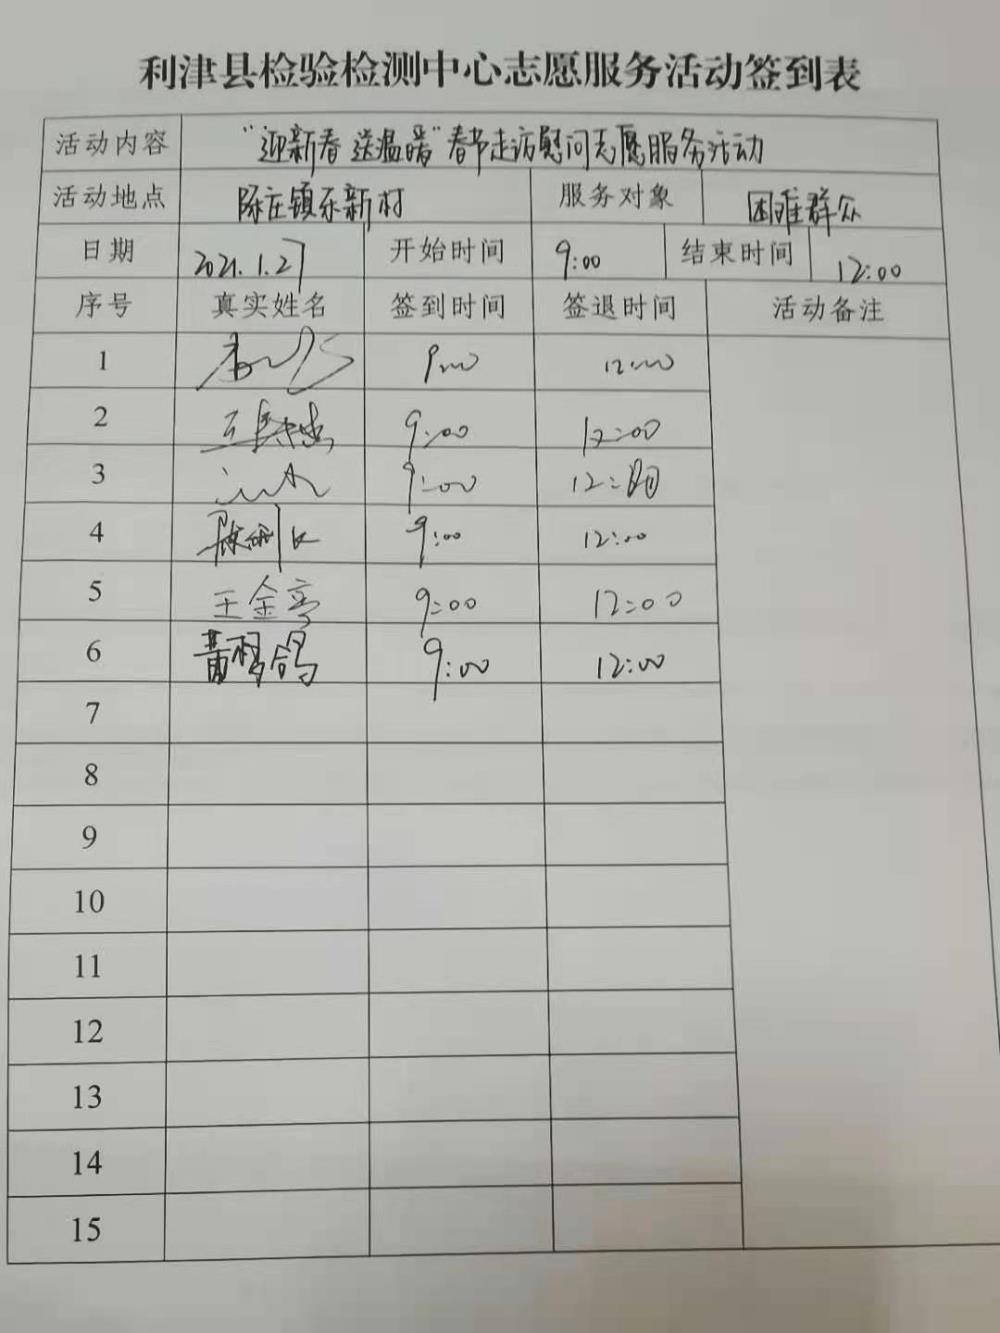 利津县检验检测中心志愿服务活动签到表
活动内容 "迎新春 送温暖"春节走访慰问志愿服务活动
活动地点 陈庄镇东新村 服务对象 困难群众
日期 2021.1.27 开始时间 9:00 结束时间 12:00
序号 真实姓名 签到时间 签退时间 活动备注
1 9:00 12:00
2 9:00 12:00
3 9:00 12:00
4 9:00 12:00
5 王金亭 9:00 12:00
6 9:00 12:00
7
8
9
10
11
12
13
14
15